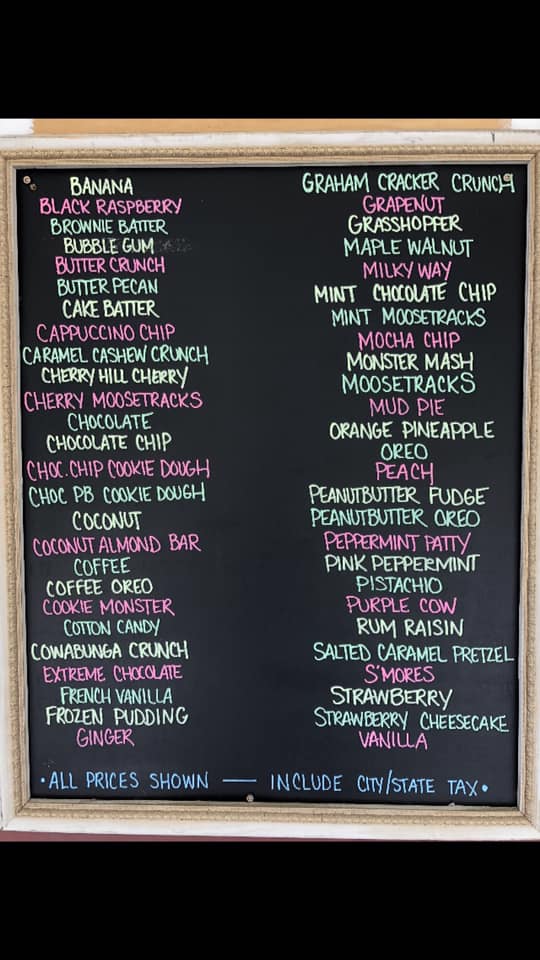 BANANA
BLACK RASPBERRY
BROWNIE BATTER
BUBBLE GUM
BUTTER CRUNCH
BUTTER PECAN
CAKE BATTER
CAPPUCCINO CHIP
CARAMEL CASHEW CRUNCH
CHERRY HILL CHERRY
CHERRY MOOSETRACKS
CHOCOLATE
CHOCOLATE CHIP
CHOC.CHIP COOKIE DOUGH
CHOC PB COOKIE DOUGH
COCONUT
COCONUT ALMOND BAR
COFFEE
COFFEE OREO
COOKIE MONSTER
COTTON CANDY
COWABUNGA CRUNCH
EXTREME CHOCOLATE
FRENCH VANILLA
FROZEN PUDDING
GINGER
GRAHAM CRACKER CRUNCH
GRAPENUT
GRASSHOPPER
MAPLE WALNUT
MILKY WAY
MINT CHOCOLATE CHIP
MINT MOOSETRACKS
MOCHA CHIP
MONSTER MASH
MOOSETRACKS
MUD PIE
ORANGE PINEAPPLE
OREO
PEACH
PEANUTBUTTER FUDGE
PEANUTBUTTER OREO
PEPPERMINT PATTY
PINK PEPPERMINT
PISTACHIO
PURPLE COW
RUM RAISIN
SALTED CARAMEL PRETZEL
S'MORES
STRAWBERRY
STRAWBERRY CHEESECAKE
VANILLA
• ALL PRICES SHOWN — INCLUDE CITY/STATE TAX •